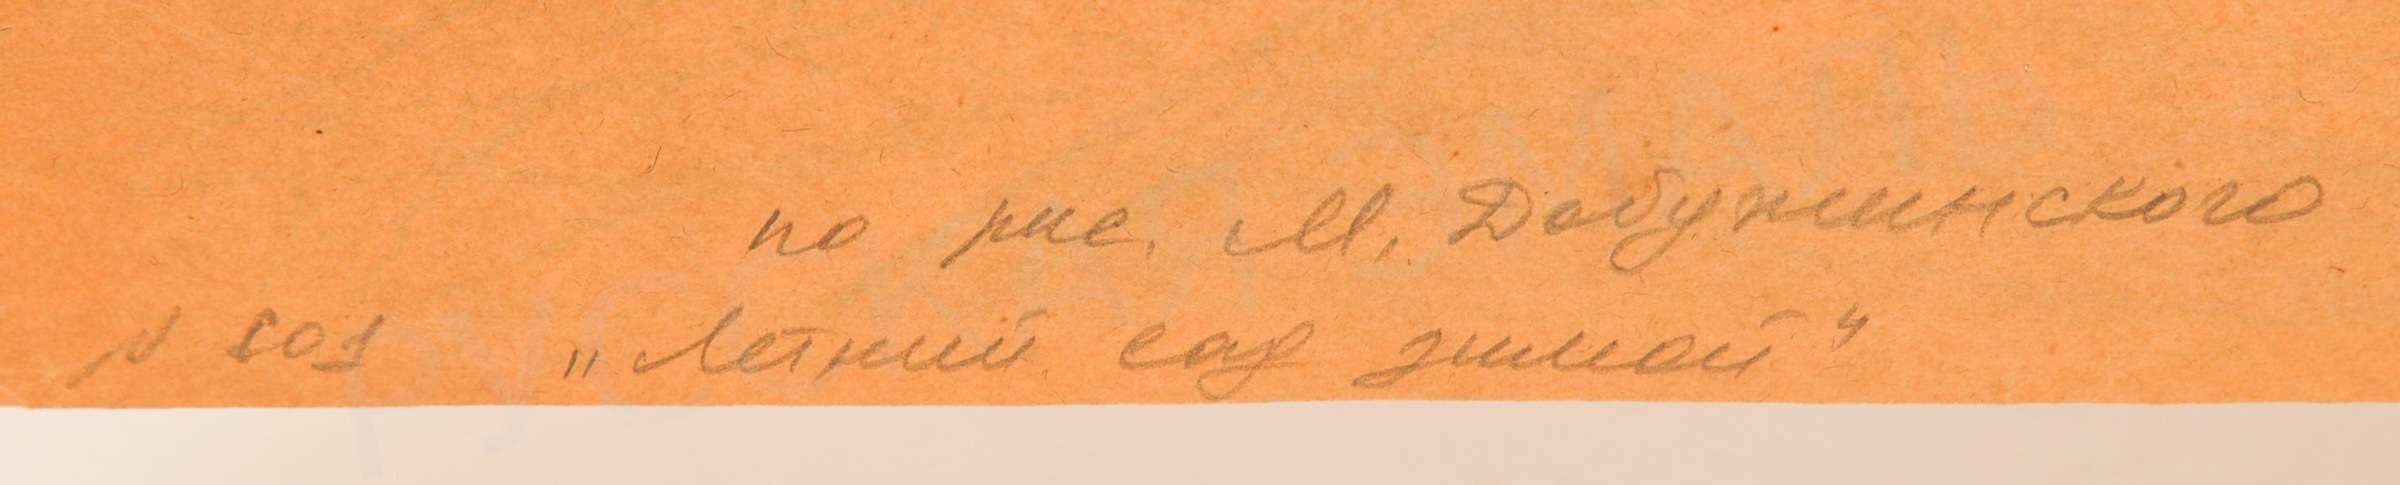 по рис. М. Добужинского
N 801 „Летний сад зимой“